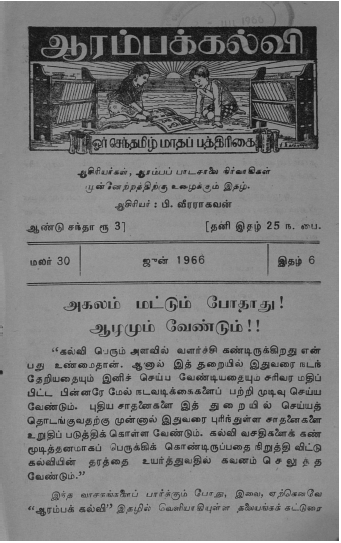 ஆரம்பக்கல்வி
ஓர் செந்தமிழ் மாதப் பத்திரிகை
ஆசிரியர்கள், ஆரம்பப் பாடசாலை நிர்வாகிகள்
முன்னேற்றத்திற்கு உழைக்கும் இதழ்.
ஆசிரியர் : பி. வீரராகவன்
ஆண்டு சந்தா ரூ 3] [தனி இதழ் 25 ந. பை.
மலர் 30 ஜூன் 1966 இதழ் 6
அகலம் மட்டும் போதாது !
ஆழமும் வேண்டும் ! !
“கல்வி பெரும் அளவில் வளர்ச்சி கண்டிருக்கிறது என்
பது உண்மைதான். ஆனால் இத் துறையில் இதுவரை நடந்
தேறியதையும் இனிச் செய்ய வேண்டியதையும் சரிவர மதிப்
பிட்ட பின்னரே மேல் நடவடிக்கைகளைப் பற்றி முடிவு செய்ய
வேண்டும். புதிய சாதனைகளை இத் துறையில் செய்யத்
தொடங்குவதற்கு முன்னால் இதுவரை புரிந்துள்ள சாதனைகளை
உறுதிப் படுத்திக் கொள்ள வேண்டும். கல்வி வசதிகளைக் கண்
மூடித்தனமாகப் பெருக்கிக் கொண்டிருப்பதை நிறுத்தி விட்டு
கல்வியின் தரத்தை உயர்த்துவதில் கவனம் செலுத்த
வேண்டும்.”
இந்த வாசகங்களைப் பார்க்கும் போது, இவை, ஏற்கெனவே
“ஆரம்பக் கல்வி” இதழில் வெளியாகியுள்ள தலையங்கக் கட்டுரை